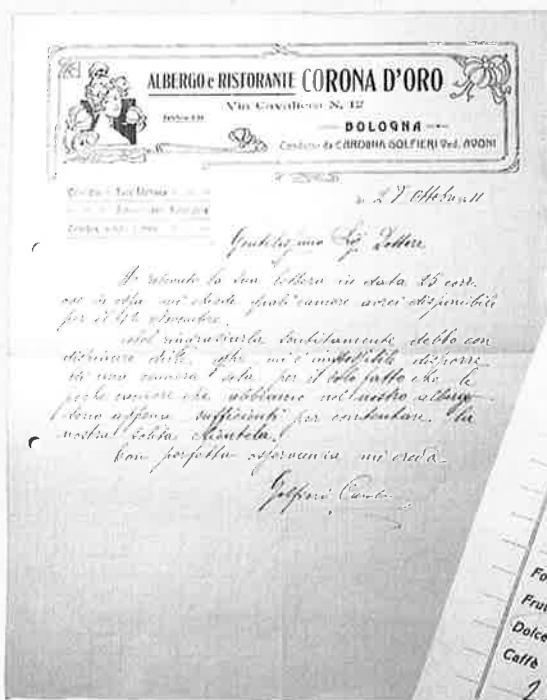 ALBERGO e RISTORANTE CORONA D'ORO
Via Cavaliera N. 12
BOLOGNA
Condotto da CAROLINA GOLFIERI Ved. AVONI
27 Ottobre 11
Gentilissimo Sig. Dottore
la sua lettera in data 25 corr.
mi chiede quali camere avrei disponibile
per il
ringraziarla sentitamente debbo con
dispiacere dirle che mi è impossibile disporre
di una camera sola per il solo fatto che le
poche camere che abbiamo nel nostro albergo
sono appena sufficienti per contentare la
nostra solita clientela.
Con perfetta osservanza mi creda
Golfieri
Fru
Dolce
Caffè
2